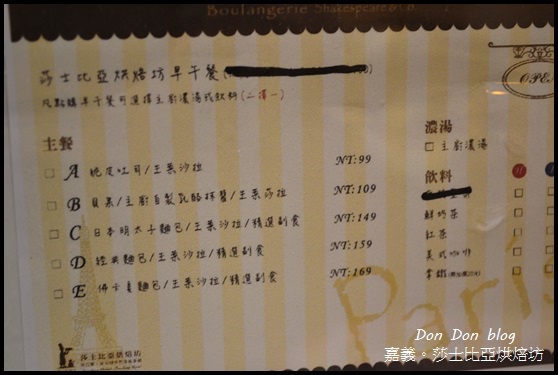 Boulangerie Shakespeare & Co.
莎士比亞烘焙坊早午餐
OPE
凡點購早午餐可選擇主廚濃湯或飲料(二擇一)
主餐
A 脆皮吐司/生菜沙拉 NT:99
B 貝果/主廚自製乳酪抹醬/生菜莎拉 NT:109
C 日本明太子麵包/生菜沙拉/精選副食 NT:149
D 經典麵包/生菜沙拉/精選副食 NT:159
E 佛卡夏麵包/生菜沙拉/精選副食 NT:169
濃湯
主廚濃湯
飲料
鮮奶茶
紅茶
美式咖啡
拿鐵
Paris
莎士比亞烘焙坊
Don Don blog
嘉義。莎士比亞烘焙坊